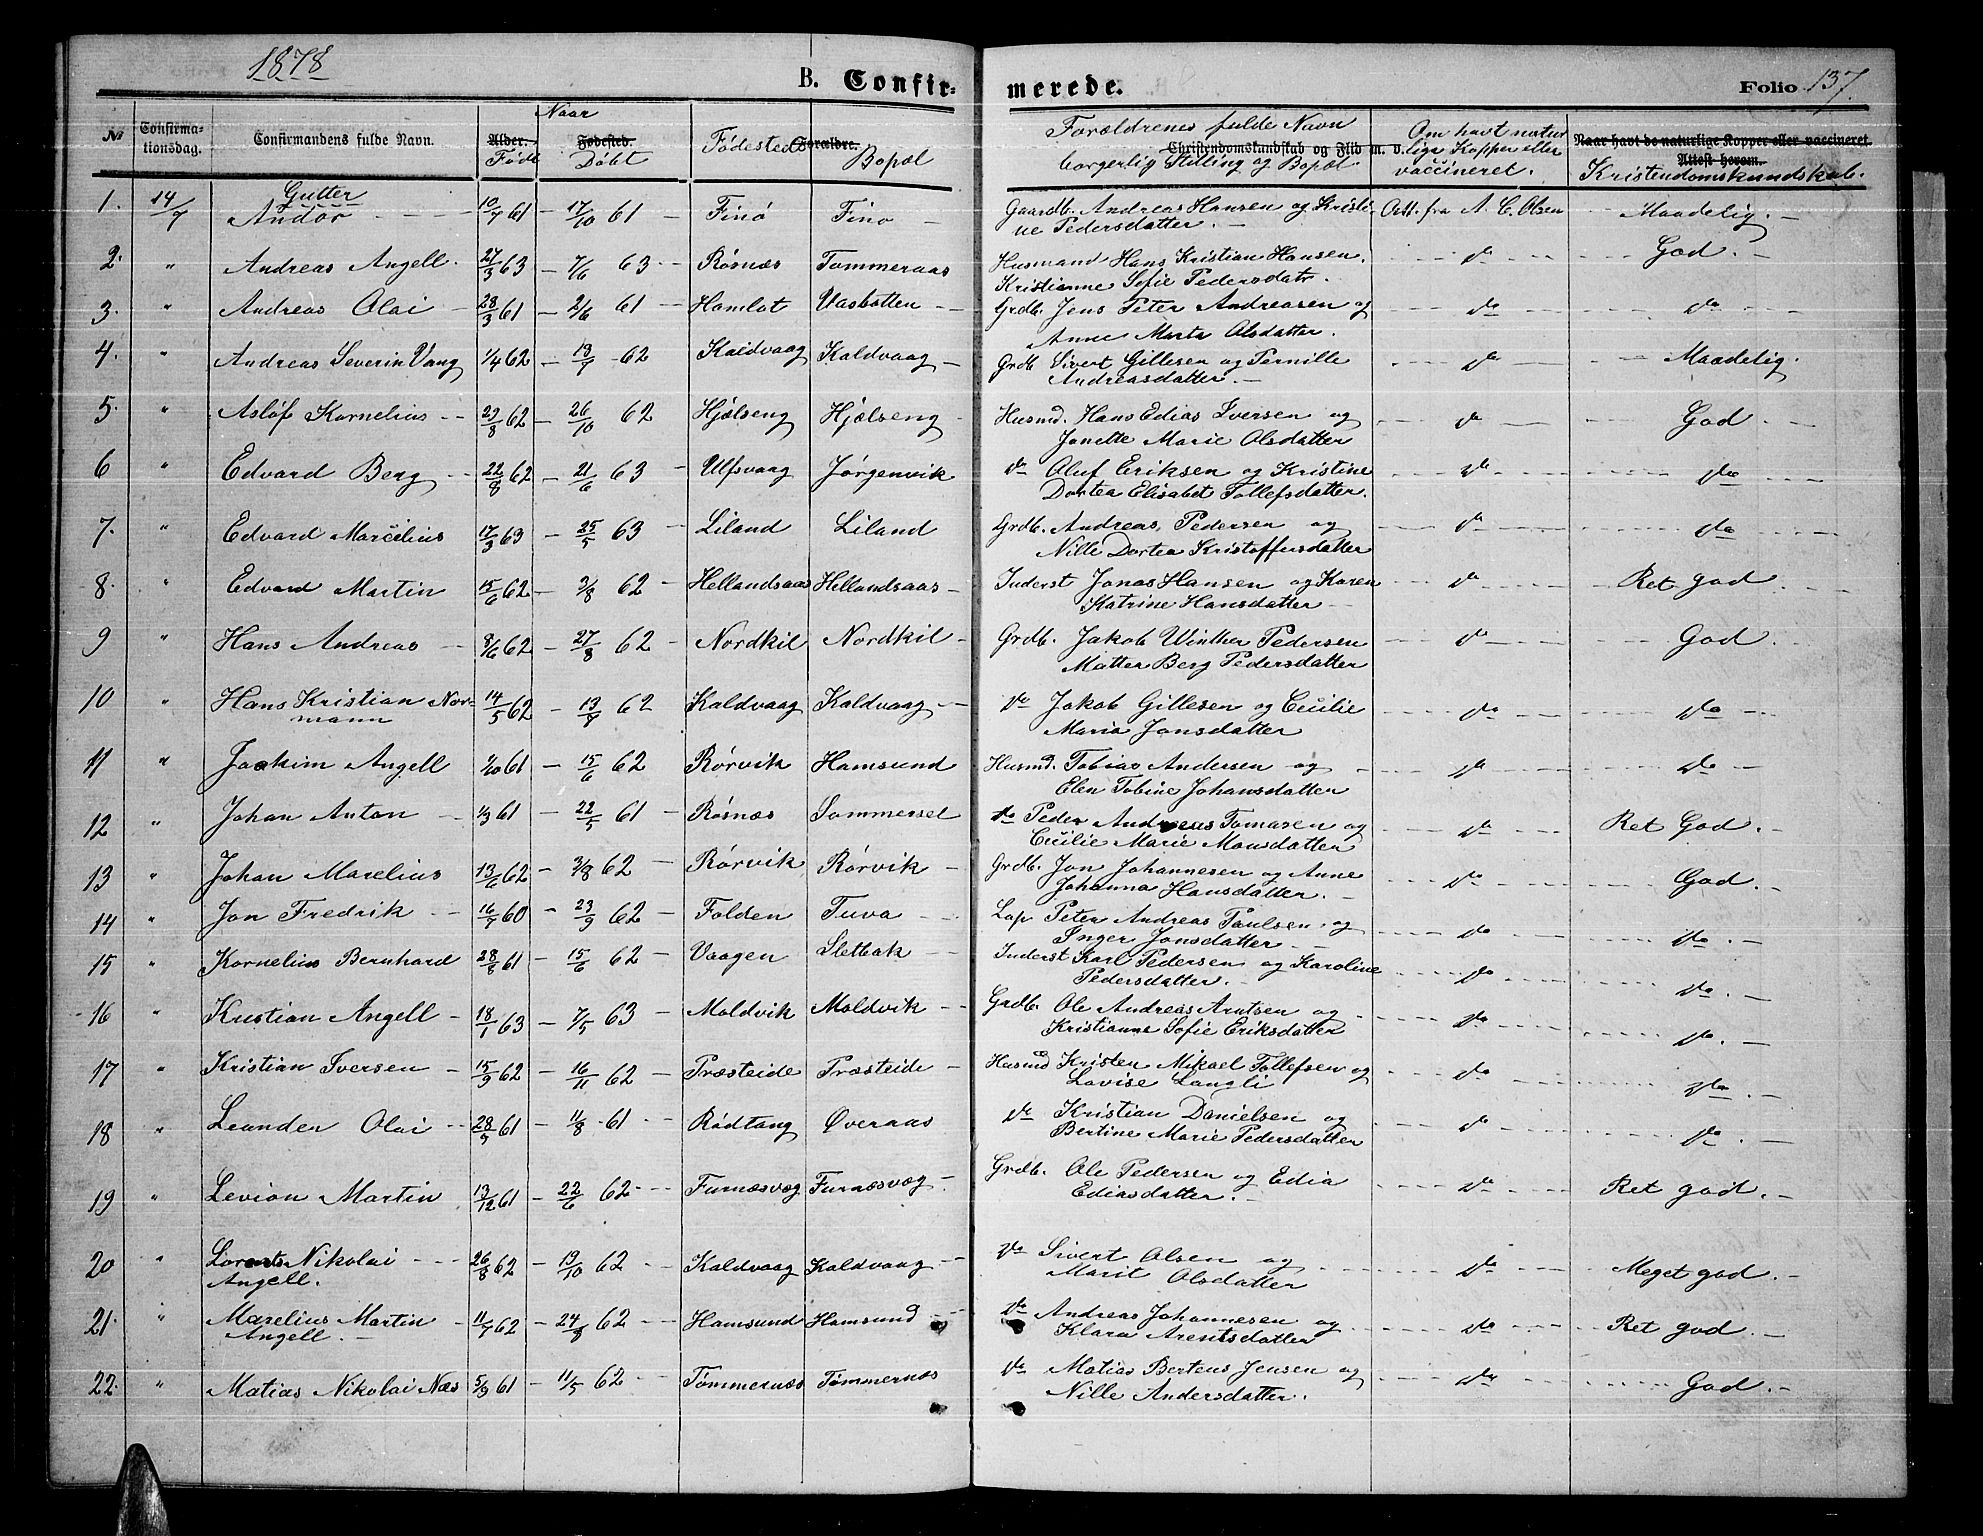 1878
B. Confir- merede. Folio 137.
No Confirma-tionsdag. Confirmandens fulde Navn. Naar Alder. Født Fødested. Døbt Fødested Forældre. Bopæl Forældrenes fulde Navn borgerlig Stilling og Bopæl Christendomskundskab og Flid m. v. Om havt naturlige Kopper eller vaccineret. Naar havt de naturlige Kopper eller vaccineret. Attest herom. Kristendomskundskab.
Gutter
1. 14/7 Andor 10/7 61 17/10 61 Finø Finø Gaardb. Andreas Hansen og Kristine Pedersdatter. Att. fra A. C. Olsen Maadelig.
2. " Andreas Angell. 27/3 63 7/6 63 Røsnæs Tømmeraas Husmand Hans Kristian Hansen. Kristianne Sofie Pedersdatr. do God.
3. " Andreas Olai 28/3 61 2/6 61 Hamlot Vasbotten Grdb. Jens Peter Andreasen og Anne Marta Olsdatter. do do
4. " Andreas Severin Vang 1/4 62 13/7 62 Kaldvaag Kaldvaag Grdb Sivert Gillesen og Pernille Andreasdatter. do Maadelig.
5. " Asløf Kornelius 29/8 62 26/10 62 Hjælseng Hjælseng Husmd. Hans Edias Iversen og Janette Marie Olsdatter do God
6 " Edvard Berg 22/8 62 21/6 63 Ulfsvaag Jørgenvik do Oluf Eriksen og Kristine Dortea Elisabet Tollefsdatter. do do
7. " Edvard Marcelius 17/3 63 25/5 63 Liland Liland Grdb. Andreas Pedersen og Nille Dortea Kristoffersdatter do do
8. " Edvard Martin 15/6 62 3/8 62 Hellandsaas Hellandsaas Inderst Jonas Hansen og Karen Katrine Hansdatter do Ret god
9 " Hans Andreas 8/6 62 27/8 62 Nordkil Nordkil Grdb. Jakob Winther Pedersen Mætter Berg Pedersdatter do God.
10 " Hans Kristian Normann 14/5 62 13/7 62 Kaldvaag Kaldvaag do Jakob Gillesen og Cecilie Maria Jonsdatter do do
11 " Joakim Angell 1/10 61 15/6 62 Rørvik Hamsund Husmd. Tobias Andersen og Elen Tobine Johansdatter do do
12 " Johan Anton 1/3 61 22/5 61 Røsnæs Sommersel do Peder Andreas Tomasen og Cecilie Marie Monsdatter do Ret God.
13 " Johan Marelius 13/6 62 3/8 62 Rørvik Rørvik Grdb. Jon Johannesen og Anne Johanna Hansdatter. do God.
14 " Jon Fredrik 16/7 60 23/9 62 Folden Tuva Lap Peter Andreas Paulsen og Inger Jonsdatter do do
15 " Kornelius Bernhard 28/8 61 15/6 62 Vaagen Sletbak Inderst Karl Pedersen og Karoline Pedersdatter. do do
16 " Kristian Angell 18/1 63 7/5 63 Moldvik Moldvik Grdb. Ole Andreas Arntsen og Kristianne Sofie Eriksdatter do do
17 " Kristian Iversen 15/9 62 16/11 62 Præsteide Præsteide Husmd Kristen Mikael Tollefsen og Lovise Langli do do
18 " Leander Olai 28/3 61 11/8 61 Rødtang Øveraas do Kristian Danielsen og Bertine Marie Pedersdatter do do
19 " Levion Martin 13/12 61 22/6 62 Furnæsvæg Furnæsvæg Grdb. Ole Pedersen og Edia Ediasdatter. do Ret god.
20 " Lorents Nikolai Angell. 26/8 62 19/10 62 Kaldvaag Kaldvaag do Sivert Olsen og Marit Olsdatter do Meget god.
21. " Marelius Martin Angell. 11/7 62 24/8 62 Hamsund Hamsund do Andreas Johannesen og Klara Arentsdatter do Ret god.
22. " Matias Nikolai Næs 5/9 61 11/5 62 Tømmernæs Tømmernæs do Matias Bertens Jensen og Nille Andersdatter. do God.